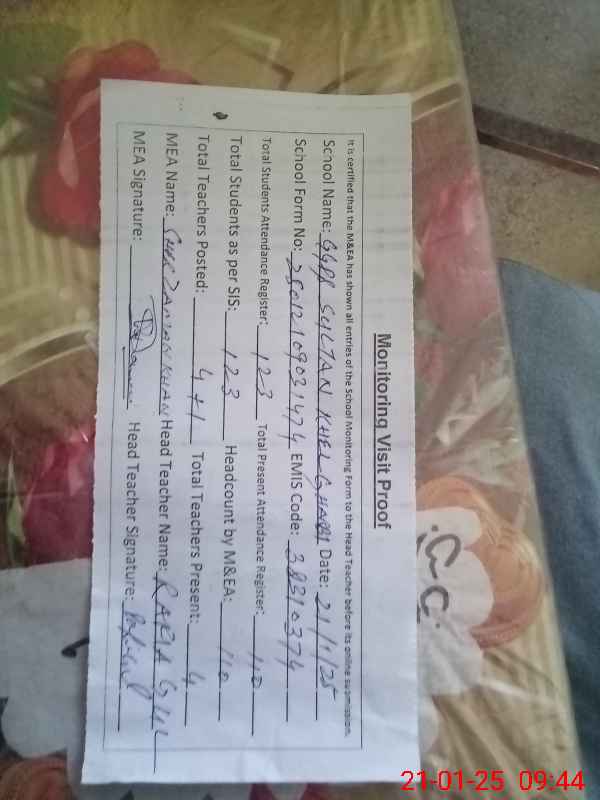 Monitoring Visit Proof
It is certified that the M&EA has shown all entries of the School Monitoring Form to the Head Teacher before its online submission.
School Name: GGPS SULTAN KHEL GHARBI Date: 21/1/25
School Form No: 2501210903 1474 EMIS Code: 38310374
Total Students Attendance Register: 123 Total Present Attendance Register: 110
Total Students as per SIS: 123 Headcount by M&EA: 110
Total Teachers Posted: 4+1 Total Teachers Present: 4
MEA Name: SHER ZAMAN KHAN Head Teacher Name: RAZIA GUL
MEA Signature: Head Teacher Signature:
21-01-25 09:44